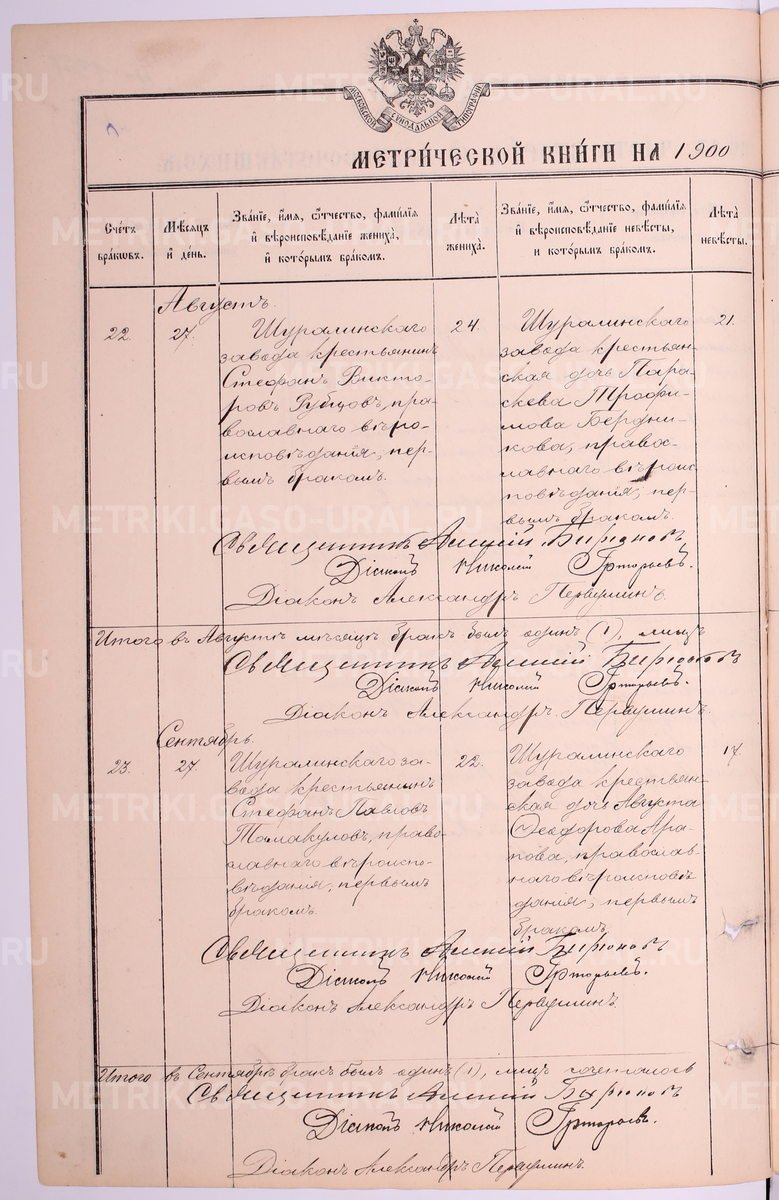 МОСКОВСКОЙ СѴНОДАЛЬНОЙ ТИПОГРАФІИ
МЕТРИ́ЧЕСКОЙ КНИ́ГИ НА 1900
Сче́тъ бра́кωвъ.
Мѣ́сяцъ и҆ де́нь.
Зва́нїе, и҆́мя, ѻ҆́тчество, фами́лїя и҆ вѣроисповѣ́данїе жениха̀, и҆ кото́рымъ бра́комъ.
Лѣ́та жениха̀.
Зва́нїе, и҆́мя, ѻ҆́тчество, фами́лїя и҆ вѣроисповѣ́данїе невѣ́сты, и҆ кото́рымъ бра́комъ.
Лѣ́та невѣ́сты.
Августъ.
22.
27.
Шуралинскаго
завода крестьянинъ
Стефанъ Викто-
ровъ Рубцовъ, пра-
вославнаго вѣро-
исповѣданія, пер-
вымъ бракомъ.
24.
Шуралинскаго
завода крестьян-
ская дочь Пара-
скева Трофи-
мова Бердни-
кова, правос-
лавнаго вѣроис-
повѣданія, пер-
вымъ бракомъ
21.
Священникъ Алексій Бирюковъ
Діаконъ Николай Григорьевъ.
Діаконъ Александръ Первушинъ.
Итого въ Августѣ мѣсяцѣ бракъ былъ одинъ (1), лицъ
Священникъ Алексій Бирюковъ
Діаконъ Николай Григорьевъ.
Діаконъ Александръ Первушинъ.
Сентябрь.
23.
27.
Шуралинскаго за-
вода крестьянинъ
Стефанъ Павловъ
православнаго вѣроиспо-
вѣданія, первымъ
бракомъ.
22.
Шуралинскаго
завода крестьян-
ская дочь Августа
Ѳеодорова Ара-
пова, православ-
наго вѣроисповѣ-
данія, первымъ
бракомъ
17.
Священникъ Алексій Бирюковъ
Діаконъ Николай Григорьевъ.
Діаконъ Александръ Первушинъ
Итого въ Сентябрѣ бракъ былъ одинъ (1), лицъ сочеталось
Священникъ Алексій Бирюковъ
Діаконъ Николай Григорьевъ.
Діаконъ Александръ Первушинъ.
METRIKI.GASO-URAL.RU